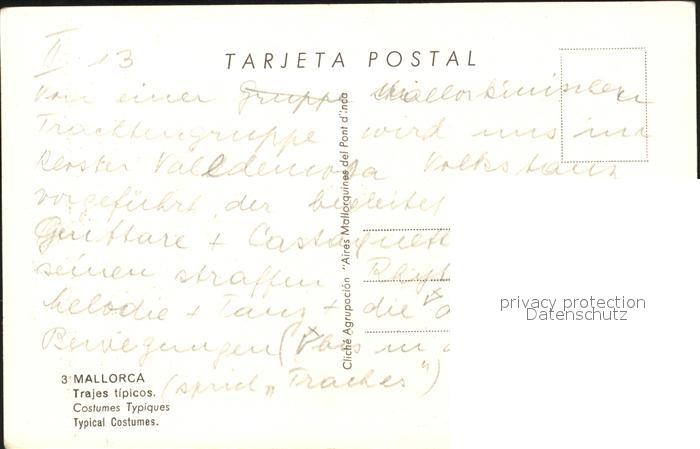 II 13
TARJETA POSTAL
Von einer Gruppe Mallorkinischen
Trachtengruppe wird uns im
Kloster Valldemosa Volkstanz
vorgeführt der begleitet
Guittare + Castagnett
seinen straffen
Melodie + Tanz + die
Bewegungen (bis in
(sprich „ Traches ")
Cliché Agrupación "Aires Mallorquines del Pont d'Inca
3 MALLORCA
Trajes típicos.
Costumes Typiques
Typical Costumes.
privacy protection
Datenschutz